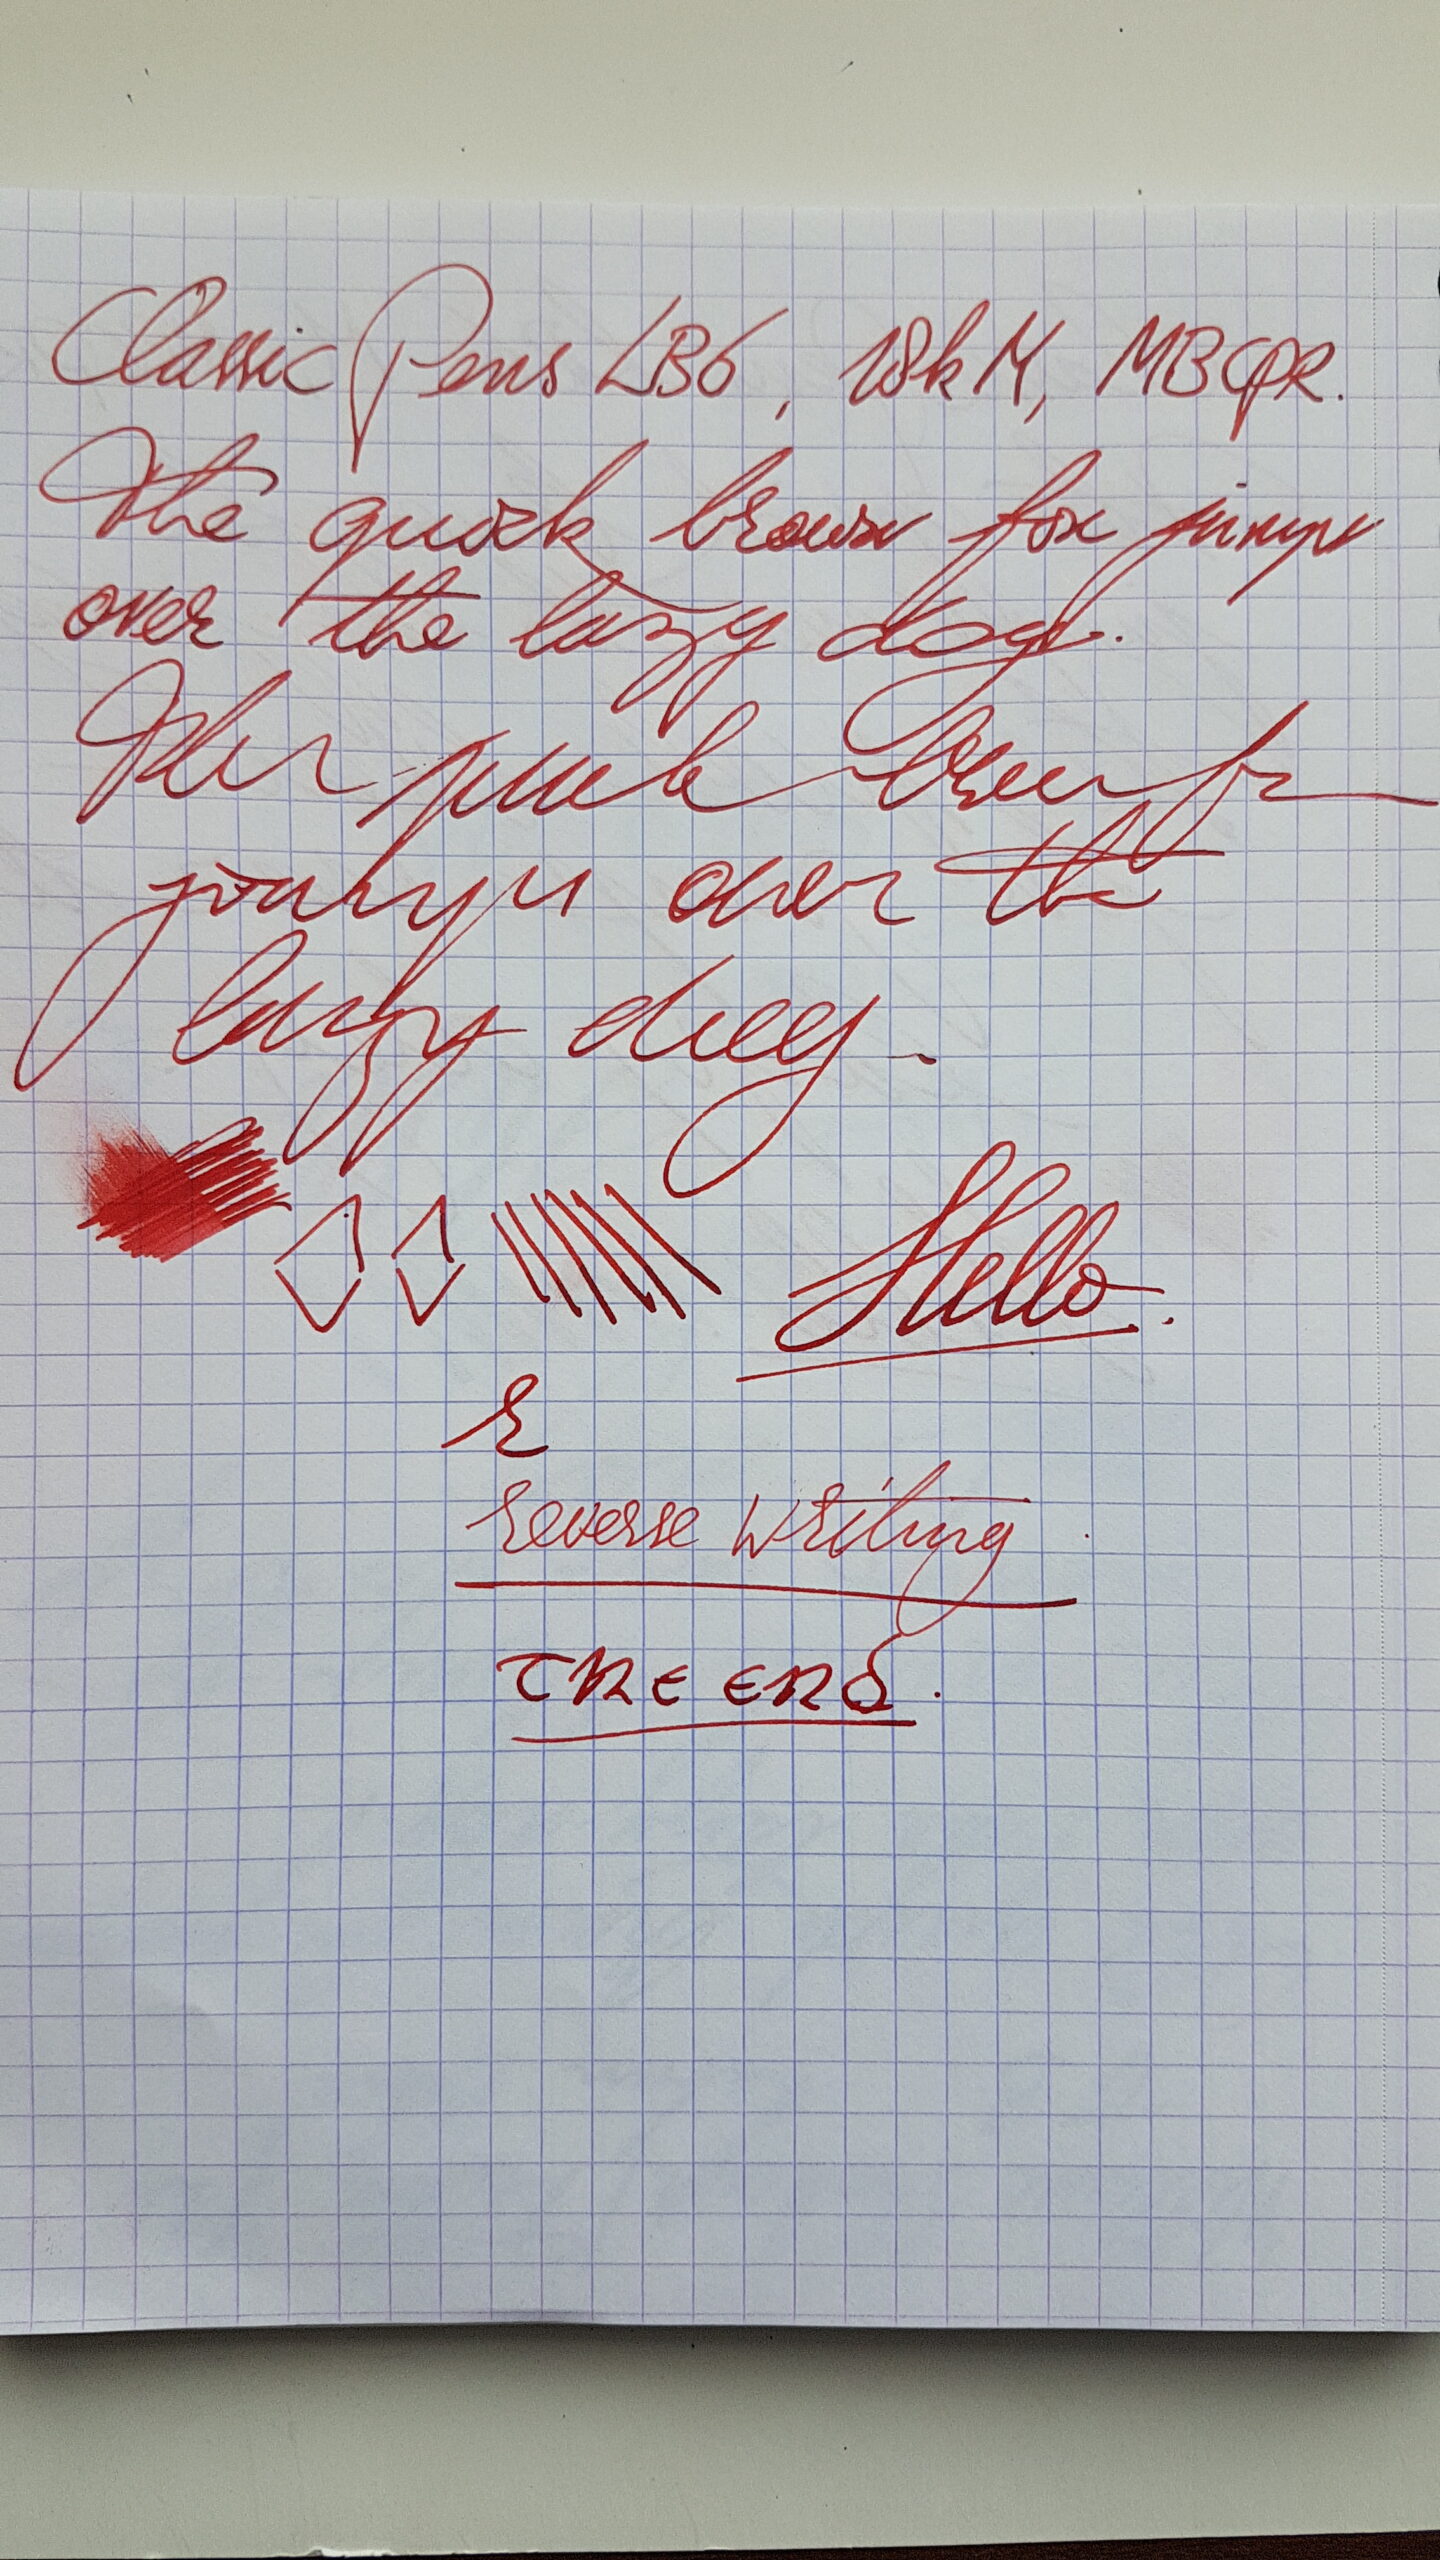 Classic Pens LB6, 18k M, MB CPR.
The quick brown fox jumps
over the lazy dog.
The quick brown fox
jumps over the
lazy dog.
Hello.
r
reverse writing
THE END.